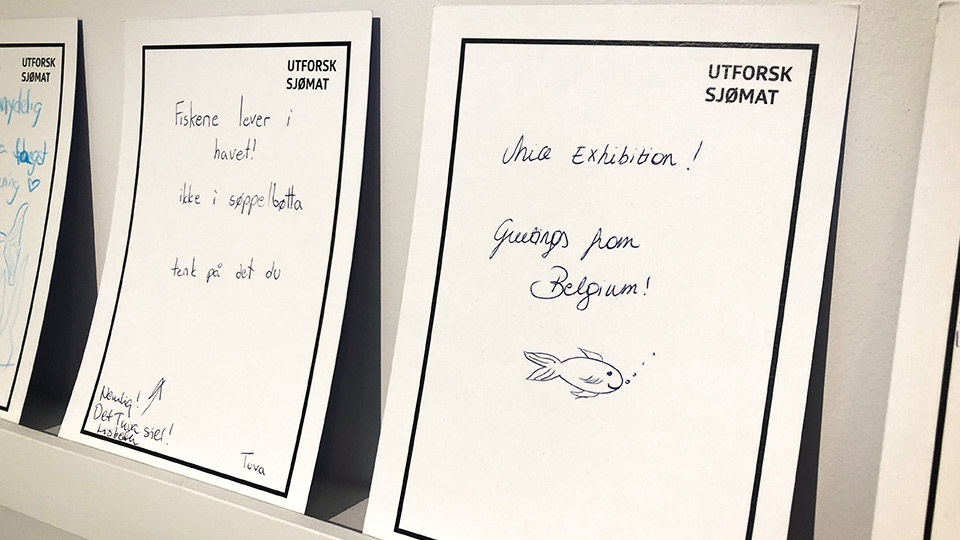 UTFORSK
SJØMAT
fangst
UTFORSK
SJØMAT
Fiskene lever i
havet!
ikke i søppelbøtta
tenk på det du
Nemlig!
Det Tuva sier!
Tuva
UTFORSK
SJØMAT
Nice Exhibition!
Greetings from
Belgium!